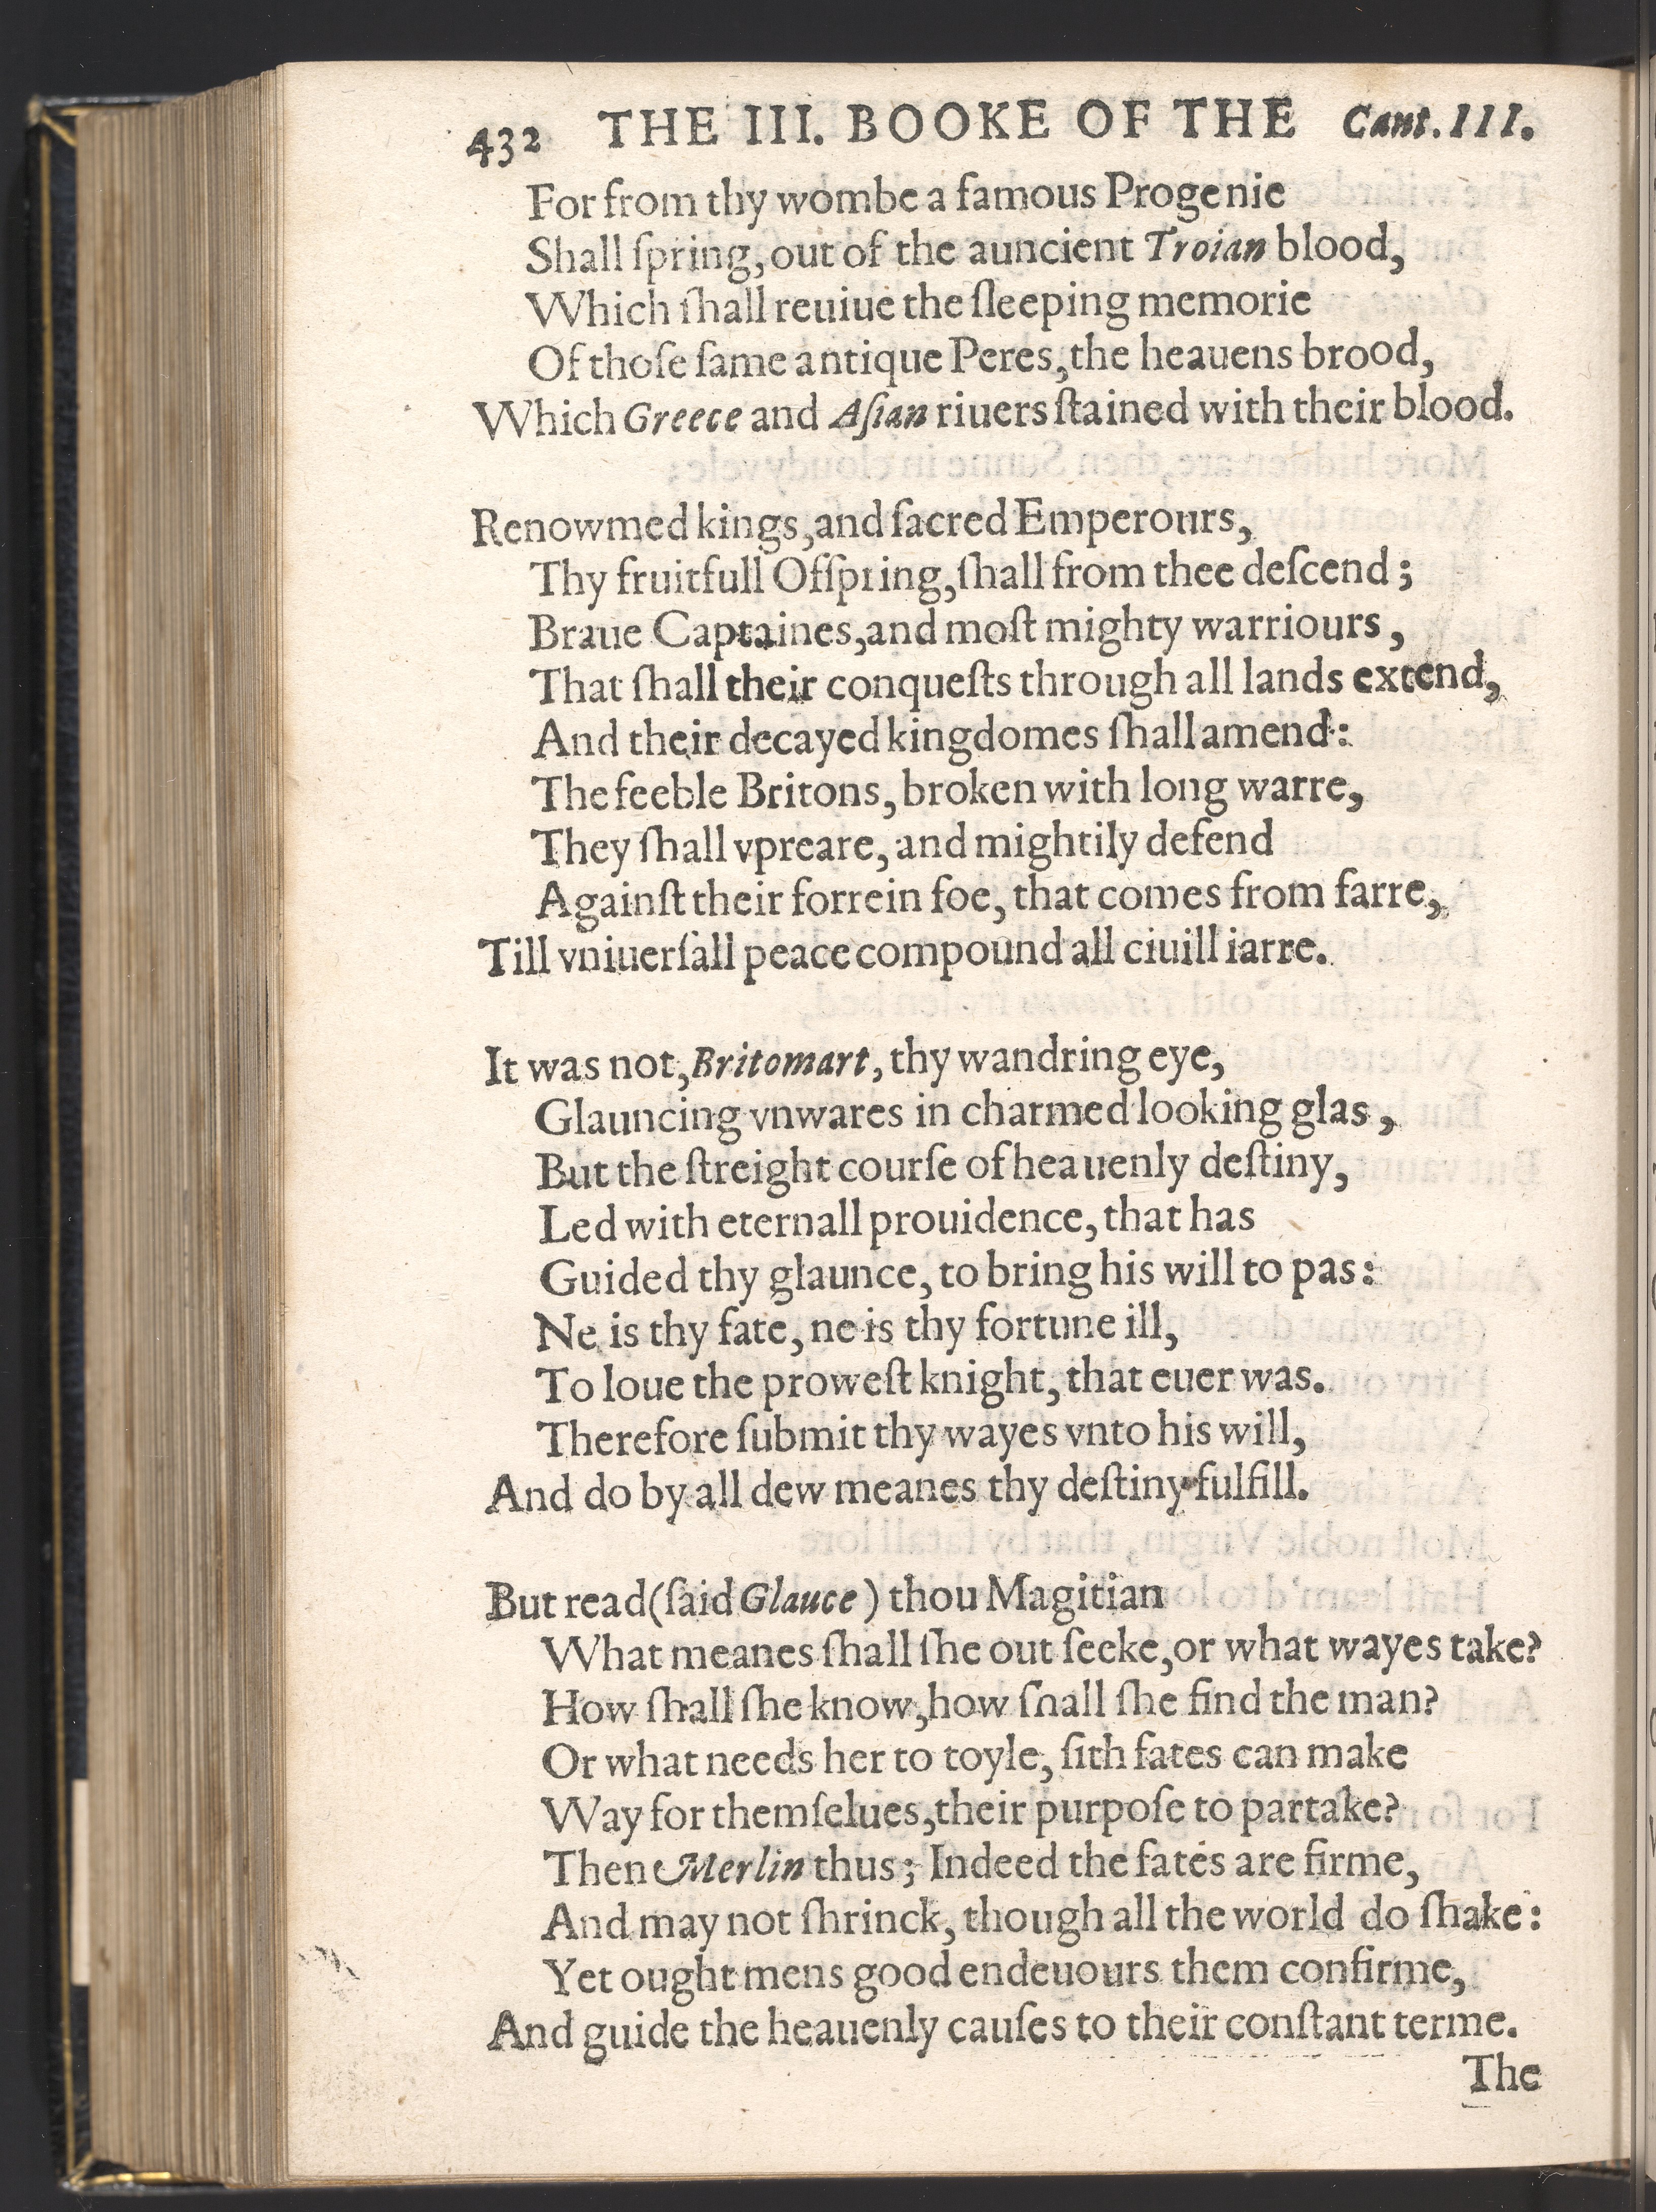 432 THE III. BOOKE OF THE Cant. III.
For from thy wombe a famous Progenie
Shall ſpring, out of the auncient Troian blood,
Which ſhall reuiue the ſleeping memorie
Of thoſe ſame antique Peres, the heauens brood,
Which Greece and Aſian riuers ſtained with their blood.
Renowmed kings, and ſacred Emperours,
Thy fruitfull Ofſpring, ſhall from thee deſcend;
Braue Captaines, and moſt mighty warriours,
That ſhall their conqueſts through all lands extend,
And their decayed kingdomes ſhall amend:
The feeble Britons, broken with long warre,
They ſhall vpreare, and mightily defend
Againſt their forrein foe, that comes from farre,
Till vniuerſall peace compound all ciuill iarre.
It was not, Britomart, thy wandring eye,
Glauncing vnwares in charmed looking glas,
But the ſtreight courſe of heauenly deſtiny,
Led with eternall prouidence, that has
Guided thy glaunce, to bring his will to pas:
Ne is thy fate, ne is thy fortune ill,
To loue the proweſt knight, that euer was.
Therefore ſubmit thy wayes vnto his will,
And do by all dew meanes thy deſtiny fulfill.
But read (ſaid Glauce) thou Magitian
What meanes ſhall ſhe out ſeeke, or what wayes take?
How ſhall ſhe know, how ſhall ſhe find the man?
Or what needs her to toyle, ſith fates can make
Way for themſelues, their purpoſe to partake?
Then Merlin thus; Indeed the fates are firme,
And may not ſhrinck, though all the world do ſhake:
Yet ought mens good endeuours them confirme,
And guide the heauenly cauſes to their conſtant terme.
The